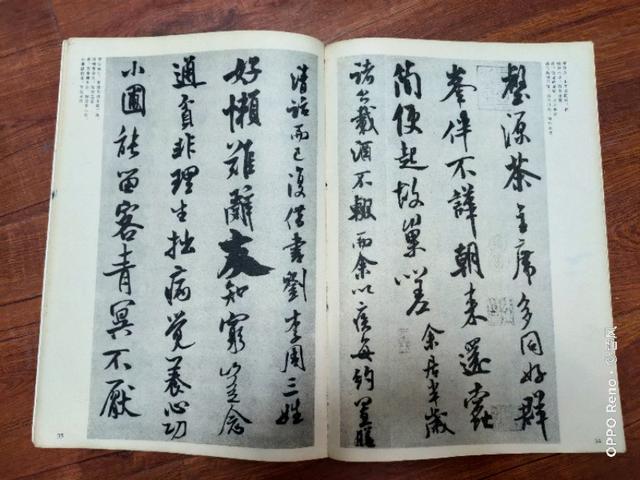 壑源茶主席多同好群
峯伴不譁朝来還蠹
簡便起故巢嗟 余居半歲
諸公載酒不輟而余以疾每約置膳
清話而已復借書劉李周三姓
好懶難辭友知窮豈念
通貧非理生拙病覺養心功
小圃能留客青冥不厭
35
34
OPPO Reno